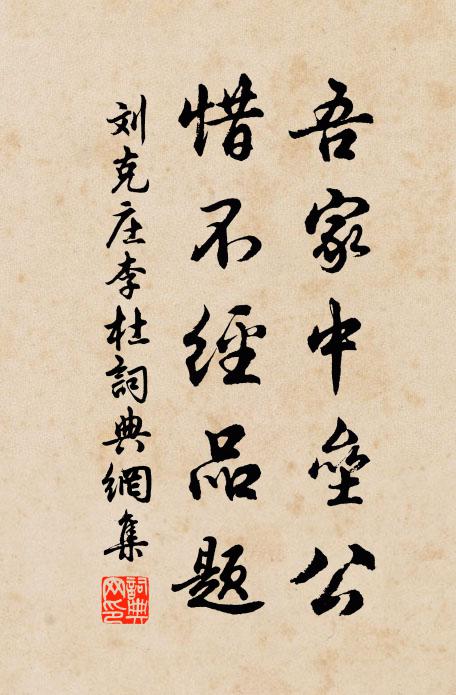 吾家中垒公
惜不經品題
刘克庄李杜詞典網集
詞典网印